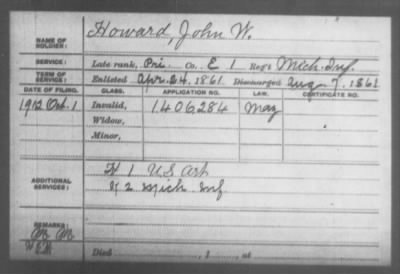 NAME OF SOLDIER: Howard, John W.
SERVICE: Late rank, Pri. Co. E 1 Reg't Mich. Inf.
TERM OF SERVICE: Enlisted Apr. 24, 1861, Discharged Aug 7, 1861
DATE OF FILING. CLASS. APPLICATION NO. LAW. CERTIFICATE NO.
1912 Oct. 1 Invalid, 1406284 May
Widow,
Minor,
ADDITIONAL SERVICES: H 1 U.S. Art
K 2 Mich Inf
REMARKS:
Died , 1 , at